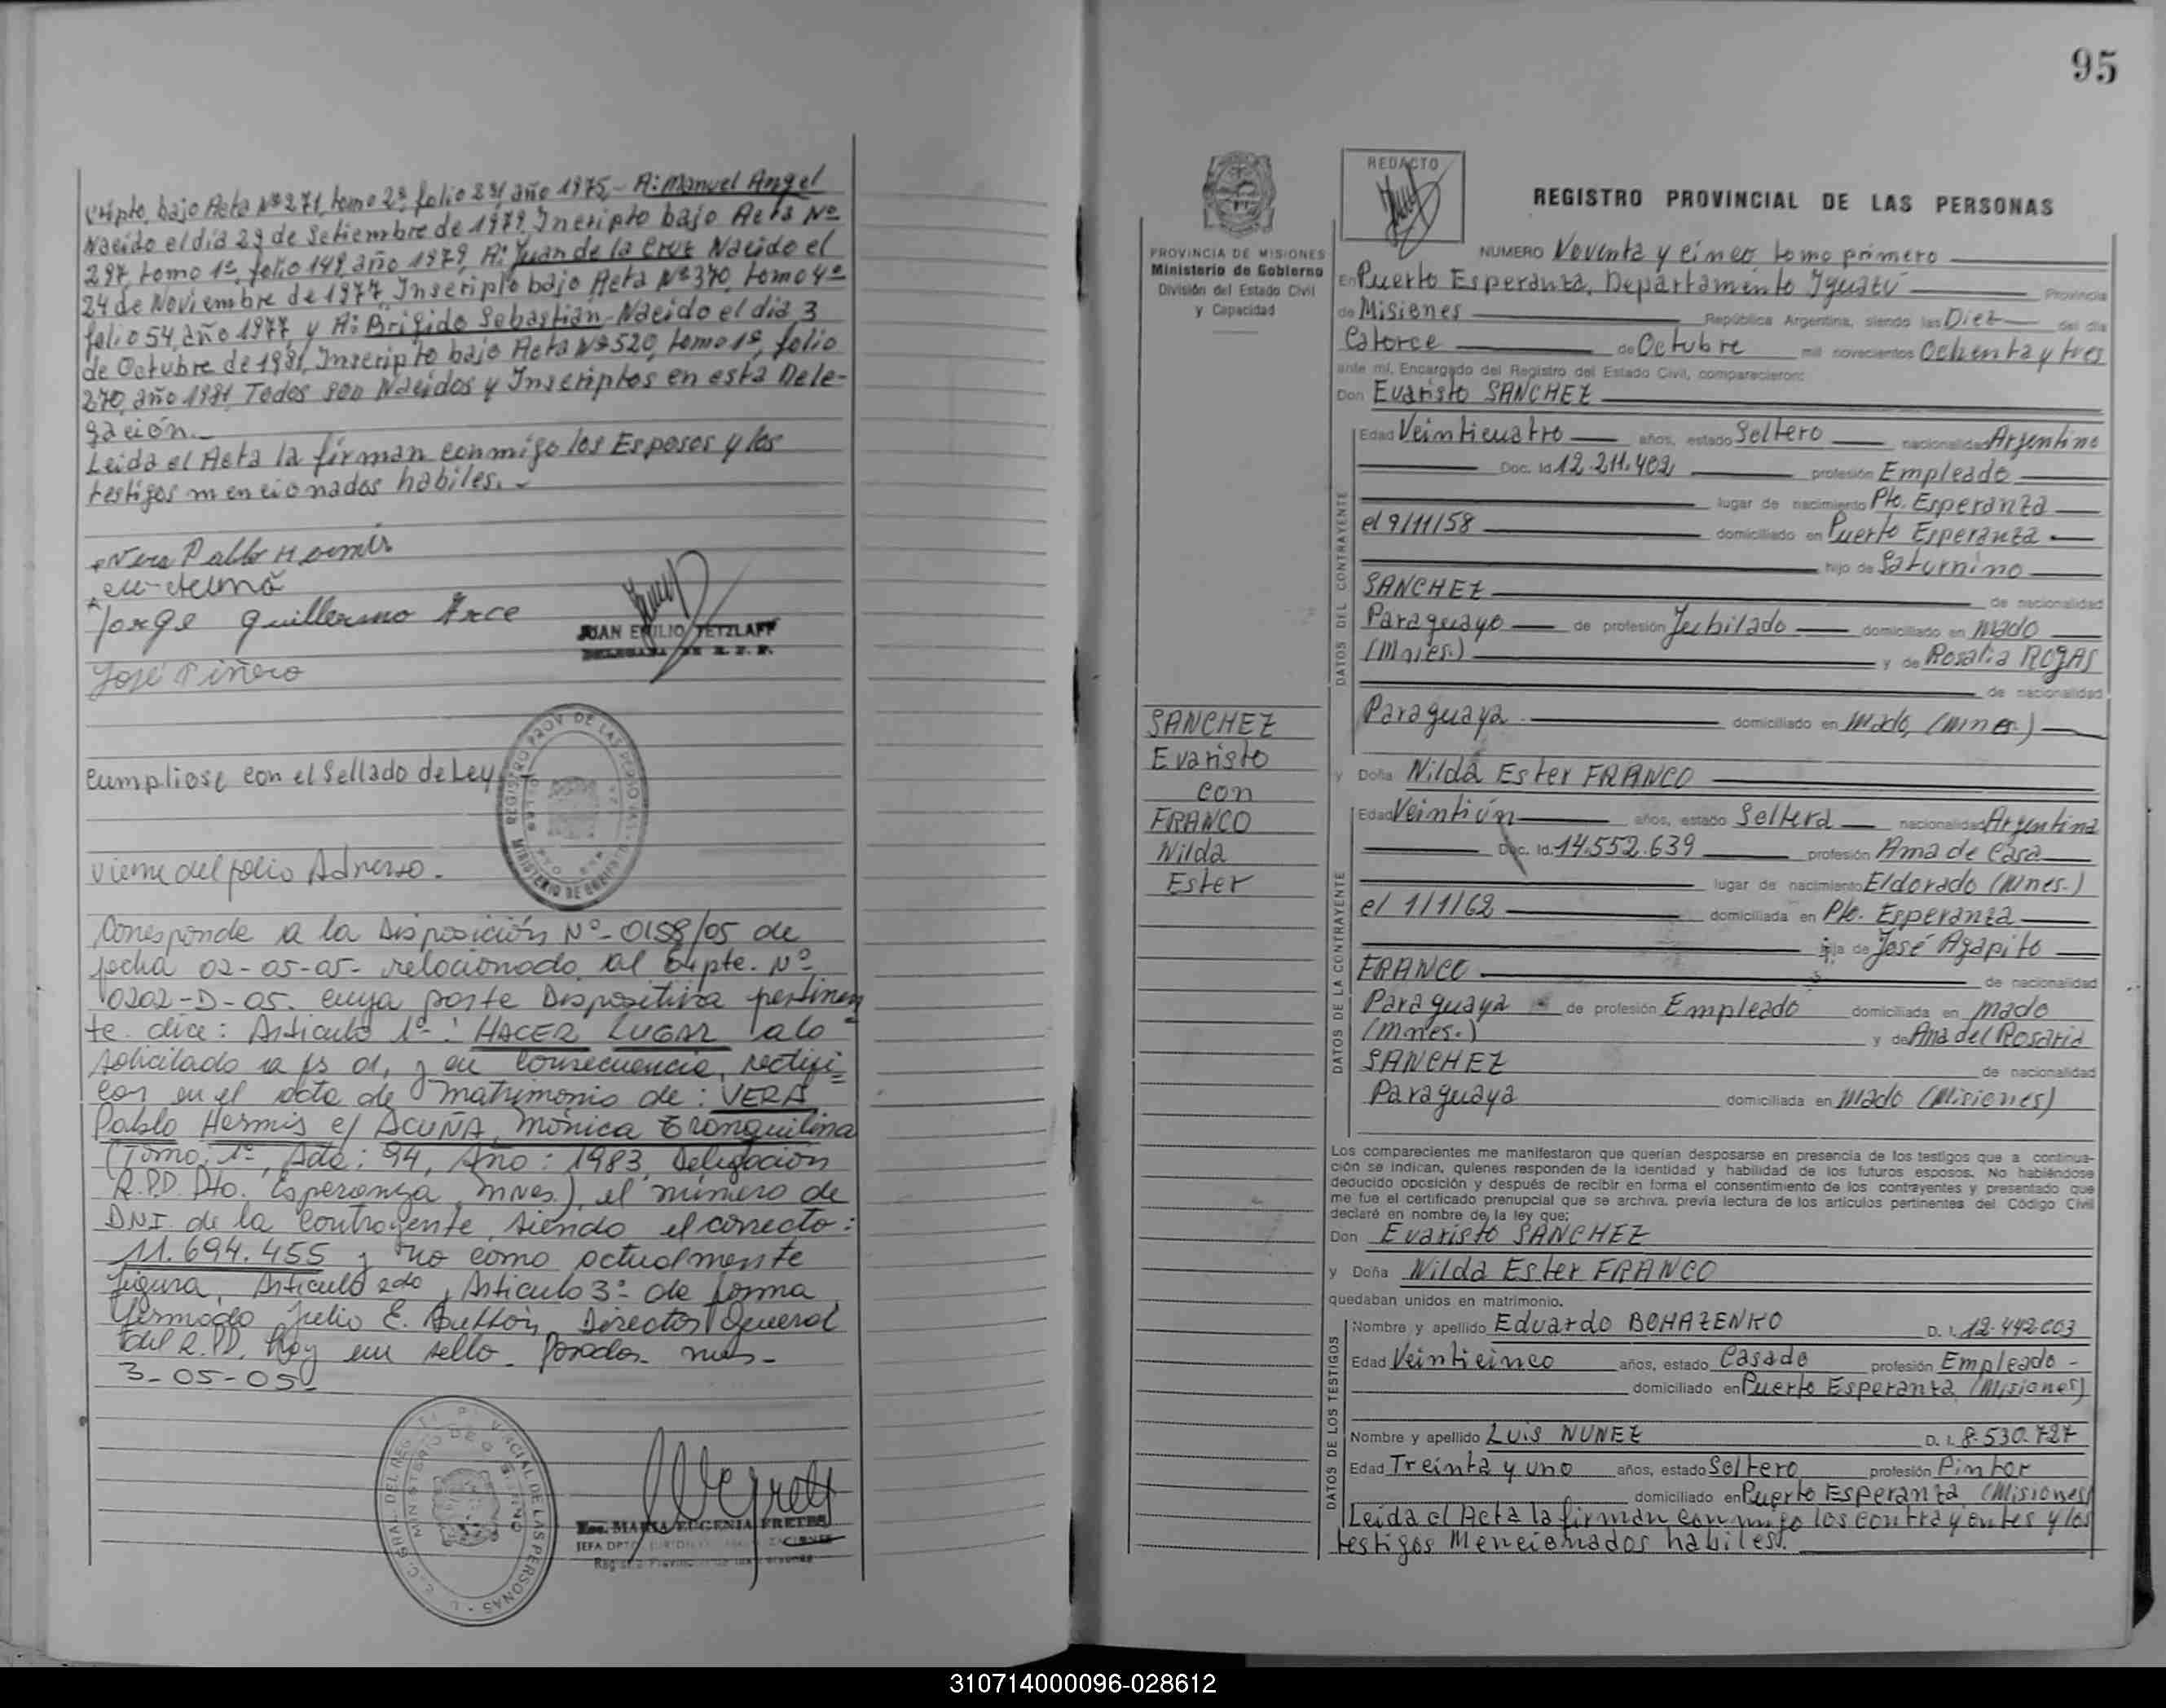 cripto, bajo Acta Nº 271, tomo 2º folio 231 año 1975,- A: Manuel Angel
Nacido el día 29 de Setiembre de 1979, Incripto bajo Acta Nº
297, tomo 1º, folio 149, año 1979, A: Juan de la Cruz Nacido el
24 de Noviembre de 1977, Inscripto bajo Acta Nº 370, tomo 4º
folio 54, año 1977, y A: Brigido Sebastian - Nacido el dia 3
de Octubre de 1981, Inscripto bajo Acta Nº 520, tomo 1º, folio
270, año 1981, Todos son Nacidos y Inscriptos en esta Dele-
gación.-
Leida el Acta la firman conmigo los Esposos y los
testigos mencionados habiles.-
Vera Pablo Hermis
Jorge Guillermo Arce
JUAN EMILIO TETZLAFF
José Piñero
Cumpliose con el Sellado de Ley
viene del folio Adverso.
Corresponde a la Disposición Nº- 0158/05 de
fecha 02-05-05- relacionado al Expte. Nº
0202-D-05. cuya parte Dispositiva pertinen
te dice: Articulo 1º: HACER LUGAR a lo
solicitado a fs 01, y en consecuencia, rectifi
car en el acta de matrimonio de: VERA
Pablo Hermis c/ ACUÑA, Mónica Tranquilina
(Tomo: 1º, Acta: 94, Año: 1983, Delegación
R.P.P. Pto. Esperanza, Mnes.), el número de
DNI de la contrayente, siendo el correcto:
11.694.455 y no como actualmente
figura, Articulo 2do, Articulo 3º de forma
Firmado Julio E. Director General
del R.P.P. Hay un sello. Posadas mnes-
3-05-05-
Esc. MARIA EUGENIA FRETES
JEFA DPTO.
95
REDACTO
REGISTRO PROVINCIAL DE LAS PERSONAS
PROVINCIA DE MISIONES
Ministerio de Gobierno
División del Estado Civil
y Capacidad
NUMERO Noventa y cinco tomo primero
En Puerto Esperanza, Departamento Iguazú Provincia
de Misiones República Argentina, siendo las Diez del día
Catorce de Octubre mil novecientos Ochenta y tres
ante mí, Encargado del Registro del Estado Civil, comparecieron:
Don Evaristo SANCHEZ
DATOS DEL CONTRAYENTE
Edad Veinticuatro años, estado Soltero nacionalidad Argentino
Doc. Id 12.211.402, profesión Empleado
lugar de nacimiento Pto. Esperanza
el 9/11/58 domiciliado en Puerto Esperanza
hijo de Saturnino
SANCHEZ de nacionalidad
Paraguayo de profesión Jubilado domiciliado en Mado
(Mnes.) y de Rosalia ROJAS
de nacionalidad
Paraguaya domiciliado en Mado, (Mnes.)
SANCHEZ
Evaristo
con
FRANCO
Nilda
Ester
y Doña Nilda Ester FRANCO
DATOS DE LA CONTRAYENTE
Edad Veintiún años, estado Soltera nacionalidad Argentina
Doc. Id. 14.552.639 profesión Ama de Casa
lugar de nacimiento Eldorado (Mnes.)
el 1/1/62 domiciliada en Pto. Esperanza
hija de José Agapito
FRANCO de nacionalidad
Paraguaya de profesión Empleado domiciliada en Mado
(Mnes.) y de Ana del Rosario
SANCHEZ de nacionalidad
Paraguaya domiciliada en Mado (Misiones)
Los comparecientes me manifestaron que querían desposarse en presencia de los testigos que a continua-
ción se indican, quienes responden de la identidad y habilidad de los futuros esposos. No habiéndose
deducido oposición y después de recibir en forma el consentimiento de los contrayentes y presentado que
me fue el certificado prenupcial que se archiva, previa lectura de los artículos pertinentes del Código Civil
declaré en nombre de la ley que:
Don Evaristo SANCHEZ
y Doña Nilda Ester FRANCO
quedaban unidos en matrimonio.
DATOS DE LOS TESTIGOS
Nombre y apellido Eduardo BOHAZENKO D. I. 12.442.003
Edad Veinticinco años, estado Casado profesión Empleado -
domiciliado en Puerto Esperanza (Misiones)
Nombre y apellido Luis NUNEZ D. I. 8.530.727
Edad Treinta y uno años, estado Soltero profesión Pintor
domiciliado en Puerto Esperanza (Misiones)
Leida el Acta la firman conmigo los contrayentes y los
testigos Mencionados habiles.
310714000096-028612